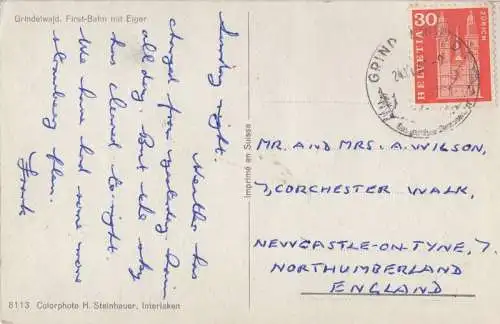 Grindelwald. First-Bahn mit Eiger
Sunday night.
Weather has
changed from yesterday. Rain
all day. But the sky
has cleared to-night.
We have had some more
Frank
8113 Colorphoto H. Steinhauer, Interlaken
Imprimé en Suisse
30
ZÜRICH
HELVETIA
GRIND
MR. AND MRS. A. WILSON,
7, CORCHESTER WALK,
NEWCASTLE-ON-TYNE, 7.
NORTHUMBERLAND
ENGLAND